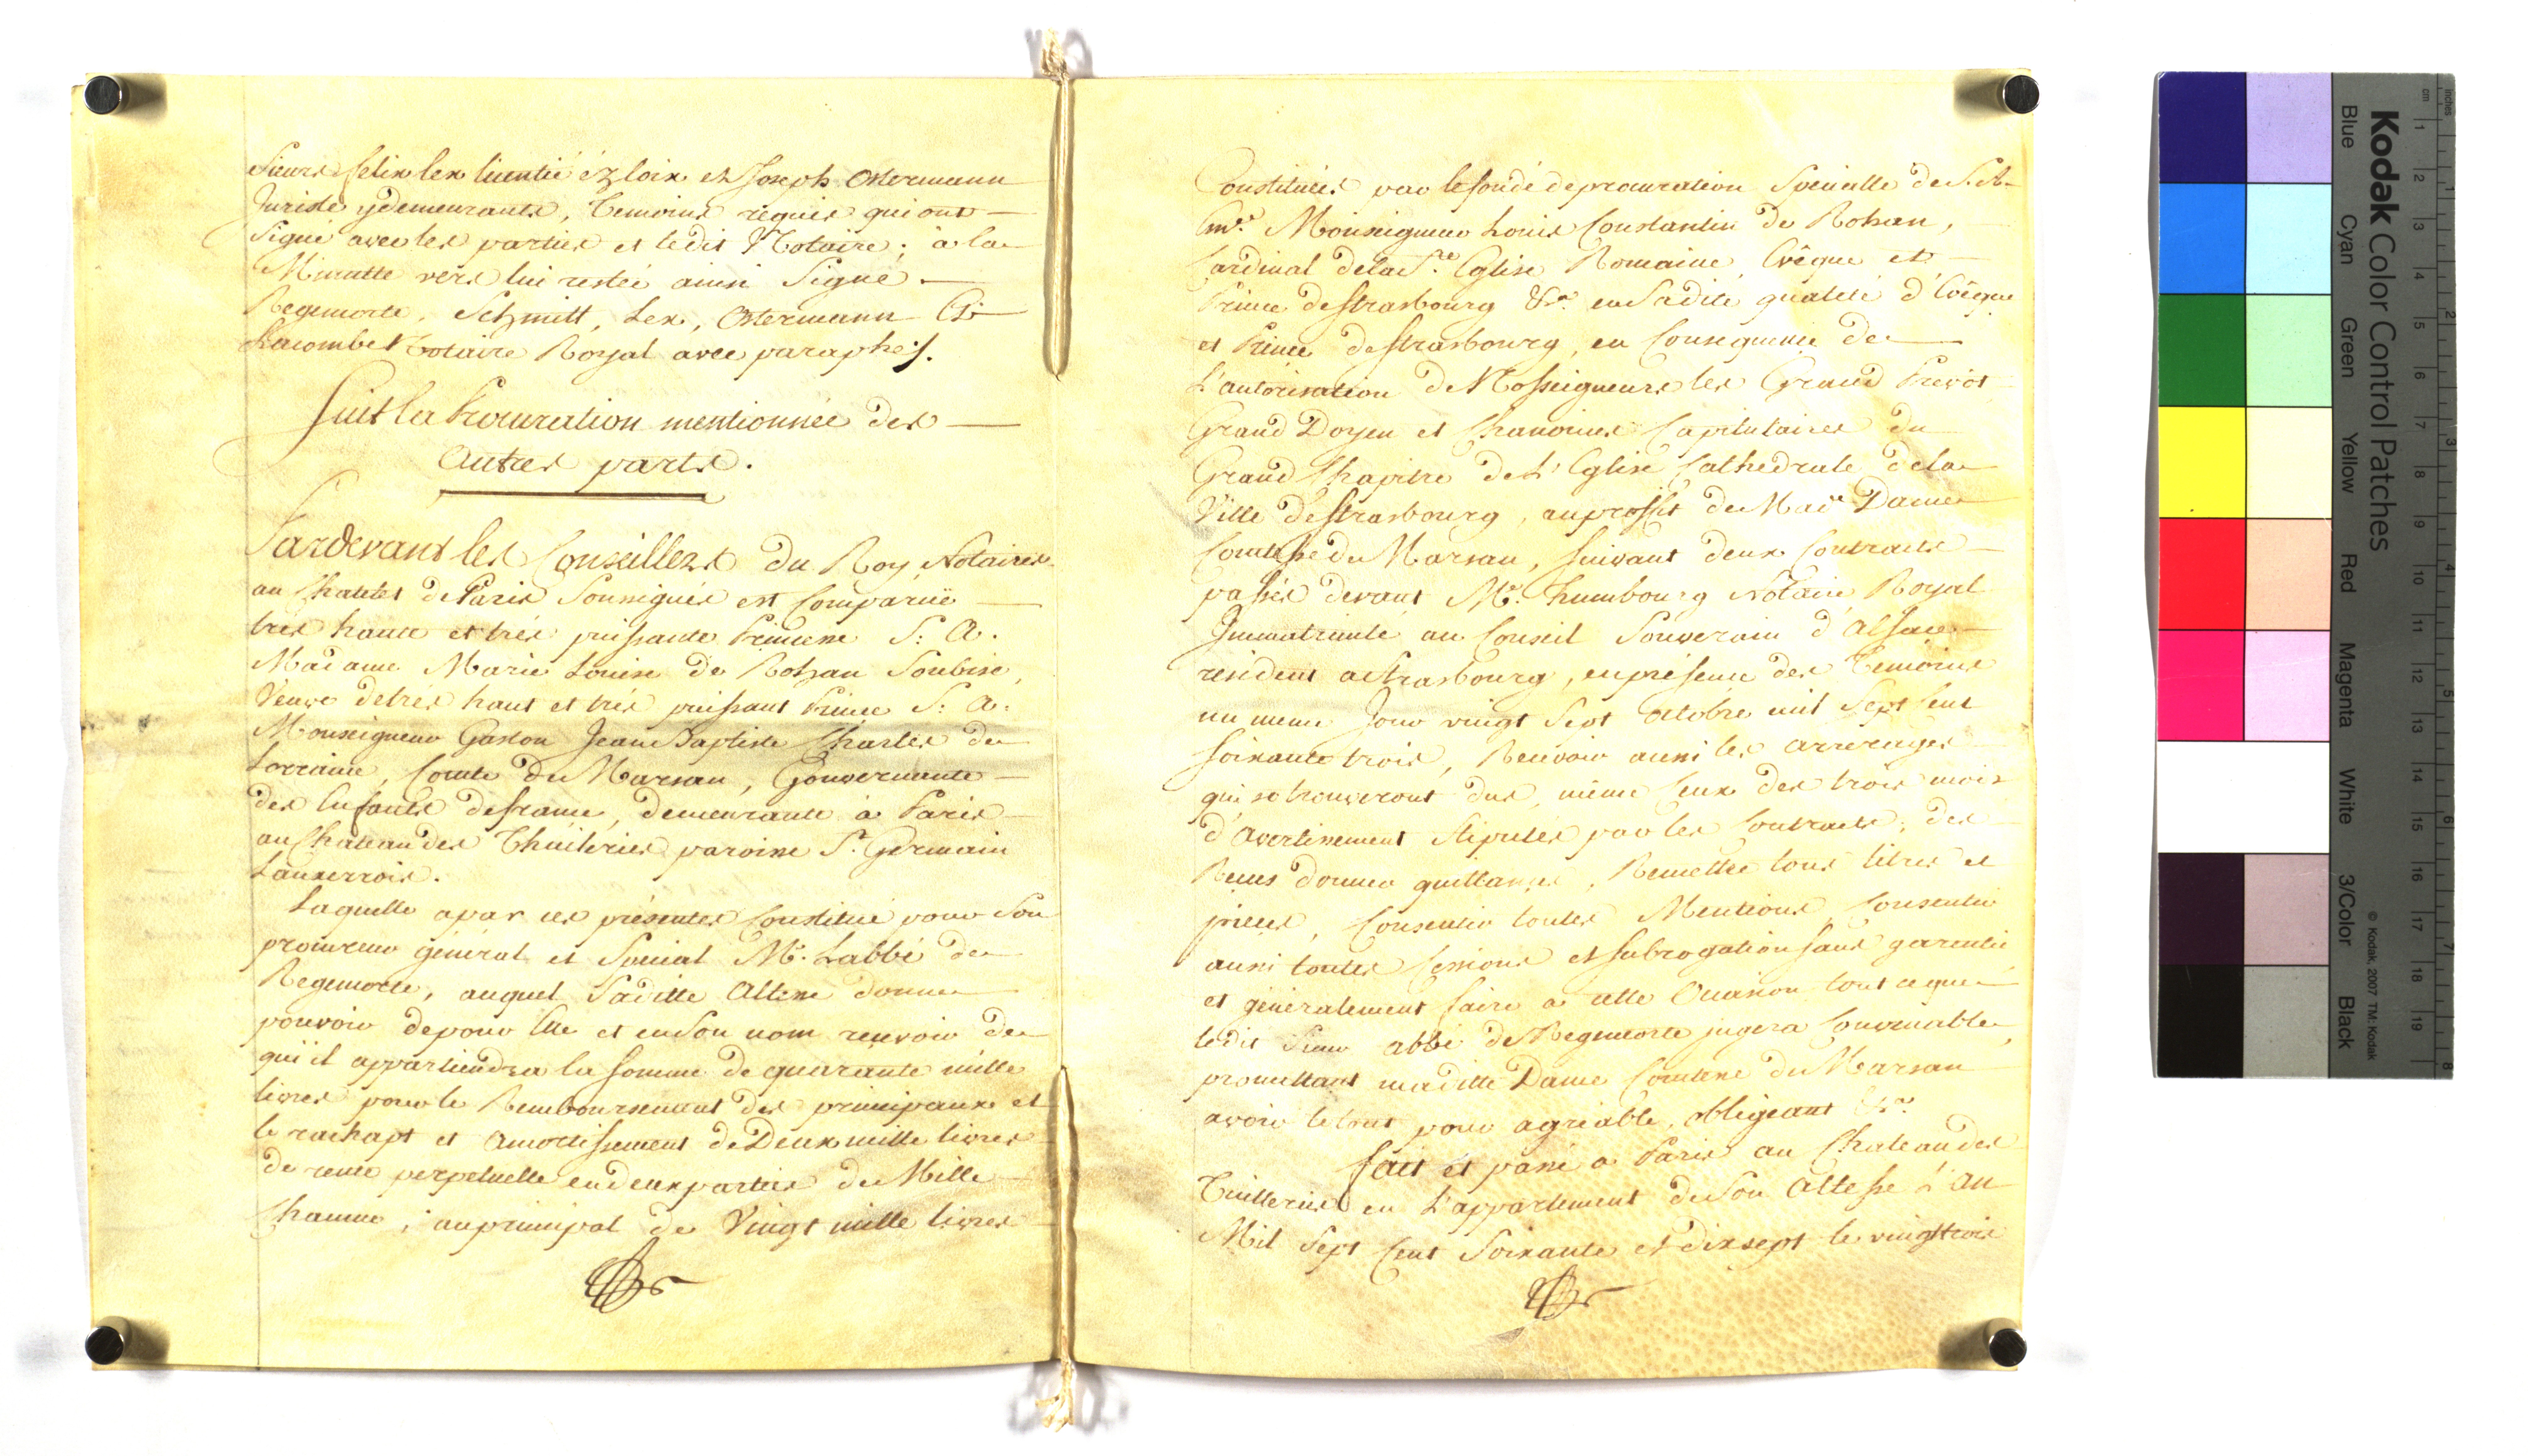 Sieurs Felix Lex licentié éz loix et Joseph Ostermann
Juriste ÿ demeurants, temoins requis qui ont
Signé avec les parties et ledit Notaire; à la
Minutte vers lui restée ainsi Signé
Regemorte, Schmitt, Lex, Ostermann Et
Lacombe Notaire Royal avec paraphes.
Suit la Procuration mentionnée des
autres parts.
Pardevant les Conseillers du Roy, Notaires
au Chatelet de Paris Soussignés est Comparuë
très haute et très puissante Princesse S: A:
Madame Marie Louise de Rohan Soubise,
Veuve de très haut et très puissant Prince S: A:
Monseigneur Gaston Jean Baptiste Charles de
Lorraine, Comte de Marsan, Gouvernante
des Enfants de france, demeurante à Paris
au Chateau des Thuileries paroisse St. Germain
Lauxerrois.
Laquelle a par ces présentes Constitué pour Son
procureur général et Special Mr. Labbé de
Regemorte, auquel Saditte Altesse donne
pouvoir de pour Elle et en Son nom recevoir de
qui il appartiendra la Somme de quarante mille
livres pour le Remboursement des principaux et
le rachapt et amortissement de Deux mille livres
de rente perpetuelle en deux parties de Mille
Chacune, au principal de Vingt mille livres
Constituées par le fondé de procuration Specialle de S. A.
Em.e Monseigneur Louis Constantin de Rohan,
Cardinal de la Ste Eglise Romaine, Evêque et
Prince de Strasbourg &ca. en Sadite qualité d'Evêque
et Prince de Strasbourg, en Consequence de
L'autorisation de Nosseigneurs les Grand Prevôt
Grand Doyen et Chanoines Capitulaires du
Grand Chapitre de L'Eglise Cathedrale de la
Ville de Strasbourg, au proffit de Made Dame
Comtesse de Marsan, Suivant deux Contracts
passés devant Me. Humbourg Notaire Royal
Immatriculé au Conseil Souverain d'Alsace
résident a Strasbourg, en présence des Temoins
un meme Jour vingt Sept Octobre mil Sept Cent
Soixante trois, Recevoir aussi les arrerages
qui se trouveront dus, même Ceux des trois mois
d'Avertissement Stipulés par les Contracts, des
Recus donner quittances, Remettre tous titres et
pièces, Consentir toutes Mentions, Consentir
aussi toutes Cessions et Subrogation Sans garentie
et généralement faire a cette Occasion tout ce que
ledit Sieur abbé de Regemorte jugera Convenable,
promettant maditte Dame Comtesse de Marsan
avoir le tout pour agréable, obligeant &ca.
fait et passé a Paris au Chateau des
Tuilleries en L'appartement de Son Altesse L'an
Mil Sept Cent Soixante et dix sept le vingt trois
Kodak Color Control Patches
Blue
Cyan
Green
Yellow
Red
Magenta
White
3/Color
Black
© Kodak, 2007 TM: Kodak
inches
cm
1
2
3
4
5
6
7
8
9
10
11
12
13
14
15
16
17
18
19
1
2
3
4
5
6
7
8